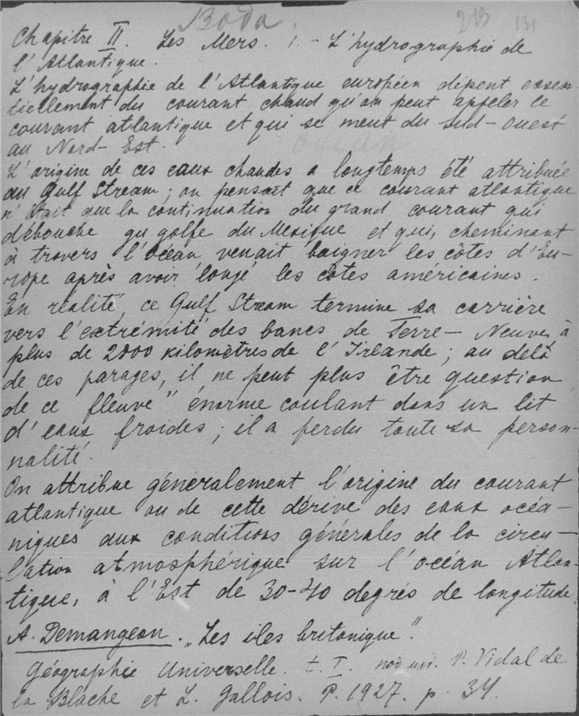 Вода.
213 131
Chapitre II. Les Mers. 1.- L'hydrographie de
l'Atlantique.
L'hydrographie de l'Atlantique européen dépent essen-
tiellement du courant chaud qu'on peut appeler le
courant atlantique et qui se meut du Sud-Ouest
au Nord-Est.
L'origine de ces eaux chaudes a longtemps été attribuée
au Gulf Stream; on pensait que ce courant atlantique
n'était que la continuation du grand courant qui
débouche du golfe du Mexique et qui, cheminant
à travers l'océan, venait baigner les côtes d'Eu-
rope après avoir longé les côtes américaines.
En réalité, ce Gulf Stream termine sa carrière
vers l'extrémité des bancs de Terre-Neuve, à
plus de 2000 kilomètres de l'Irlande; au delà
de ces parages, il ne peut plus être question
de ce fleuve" énorme coulant dans un lit
d'eaux froides; il a perdu toute sa person-
nalité.
On attribue généralement l'origine du courant
atlantique ou de cette dérive des eaux océa-
niques aux conditions générales de la circu-
lation atmosphérique sur l'océan Atlan-
tique, à l'Est de 30-40 degrés de longitude.
A. Demangeon. „Les iles britanique".
Géographie Universelle. t. I. под ред. P. Vidal de
la Blache et L. Gallois. P. 1927. p. 34.